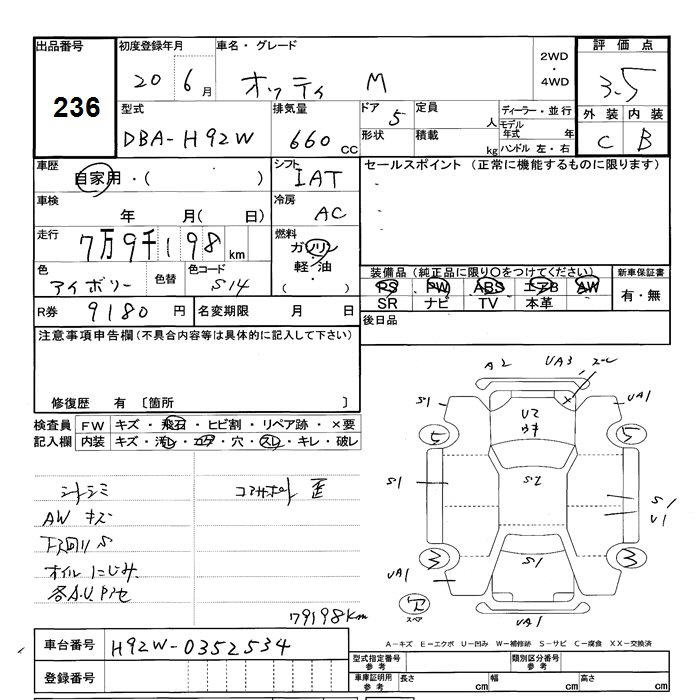 出品番号 初度登録年月 車名・グレード 2WD・4WD 評価点
236 20 6月 オッティ M 3.5
型式 排気量 ドア 5 定員 人 ディーラー・並行 外装 内装
DBA-H92W 660cc 形状 積載 kg モデル年式 年 ハンドル 左・右 C B
車歴 自家用・( ) シフト IAT セールスポイント (正常に機能するものに限ります)
車検 年 月( 日) 冷房 AC
走行 7万9千198km 燃料 ガソリン 軽・油 ( )
色 アイボリー 色替 色コード S14
装備品(純正品に限り○をつけてください) 新車保証書
PS PW ABS エアB AW 有・無
SR ナビ TV 本革
R券 9180円 名変期限 月 日 後日品
注意事項申告欄(不具合内容等は具体的に記入して下さい)
修復歴 有 〔箇所 〕
検査員 FW キズ・飛石・ヒビ割・リペア跡・×要
記入欄 内装 キズ・汚レ・コゲ・穴・スレ・キレ・破レ
シートシミ コアサポート 歪
AW キズ
下廻り S
オイルにじみ
各A.U.P/セ
79198Km
A2 UA3
S1 UA1
U2
5 5
S1 S2 S1
U1
3 S1 3
UA1
スペア UA1
A-キズ E-エクボ U-凹み W-補修跡 S-サビ C-腐食 XX-交換済
車台番号 H92W-0352534
登録番号
型式指定番号 参考 類別区分番号 参考
車庫証明用 参考 長さ cm 幅 cm 高さ cm